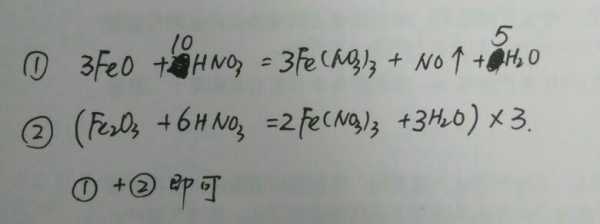 ① 3FeO + 10HNO₃ = 3Fe(NO₃)₃ + NO↑ + 5H₂O
② (Fe₂O₃ + 6HNO₃ = 2Fe(NO₃)₃ + 3H₂O) × 3.
① + ② 即可